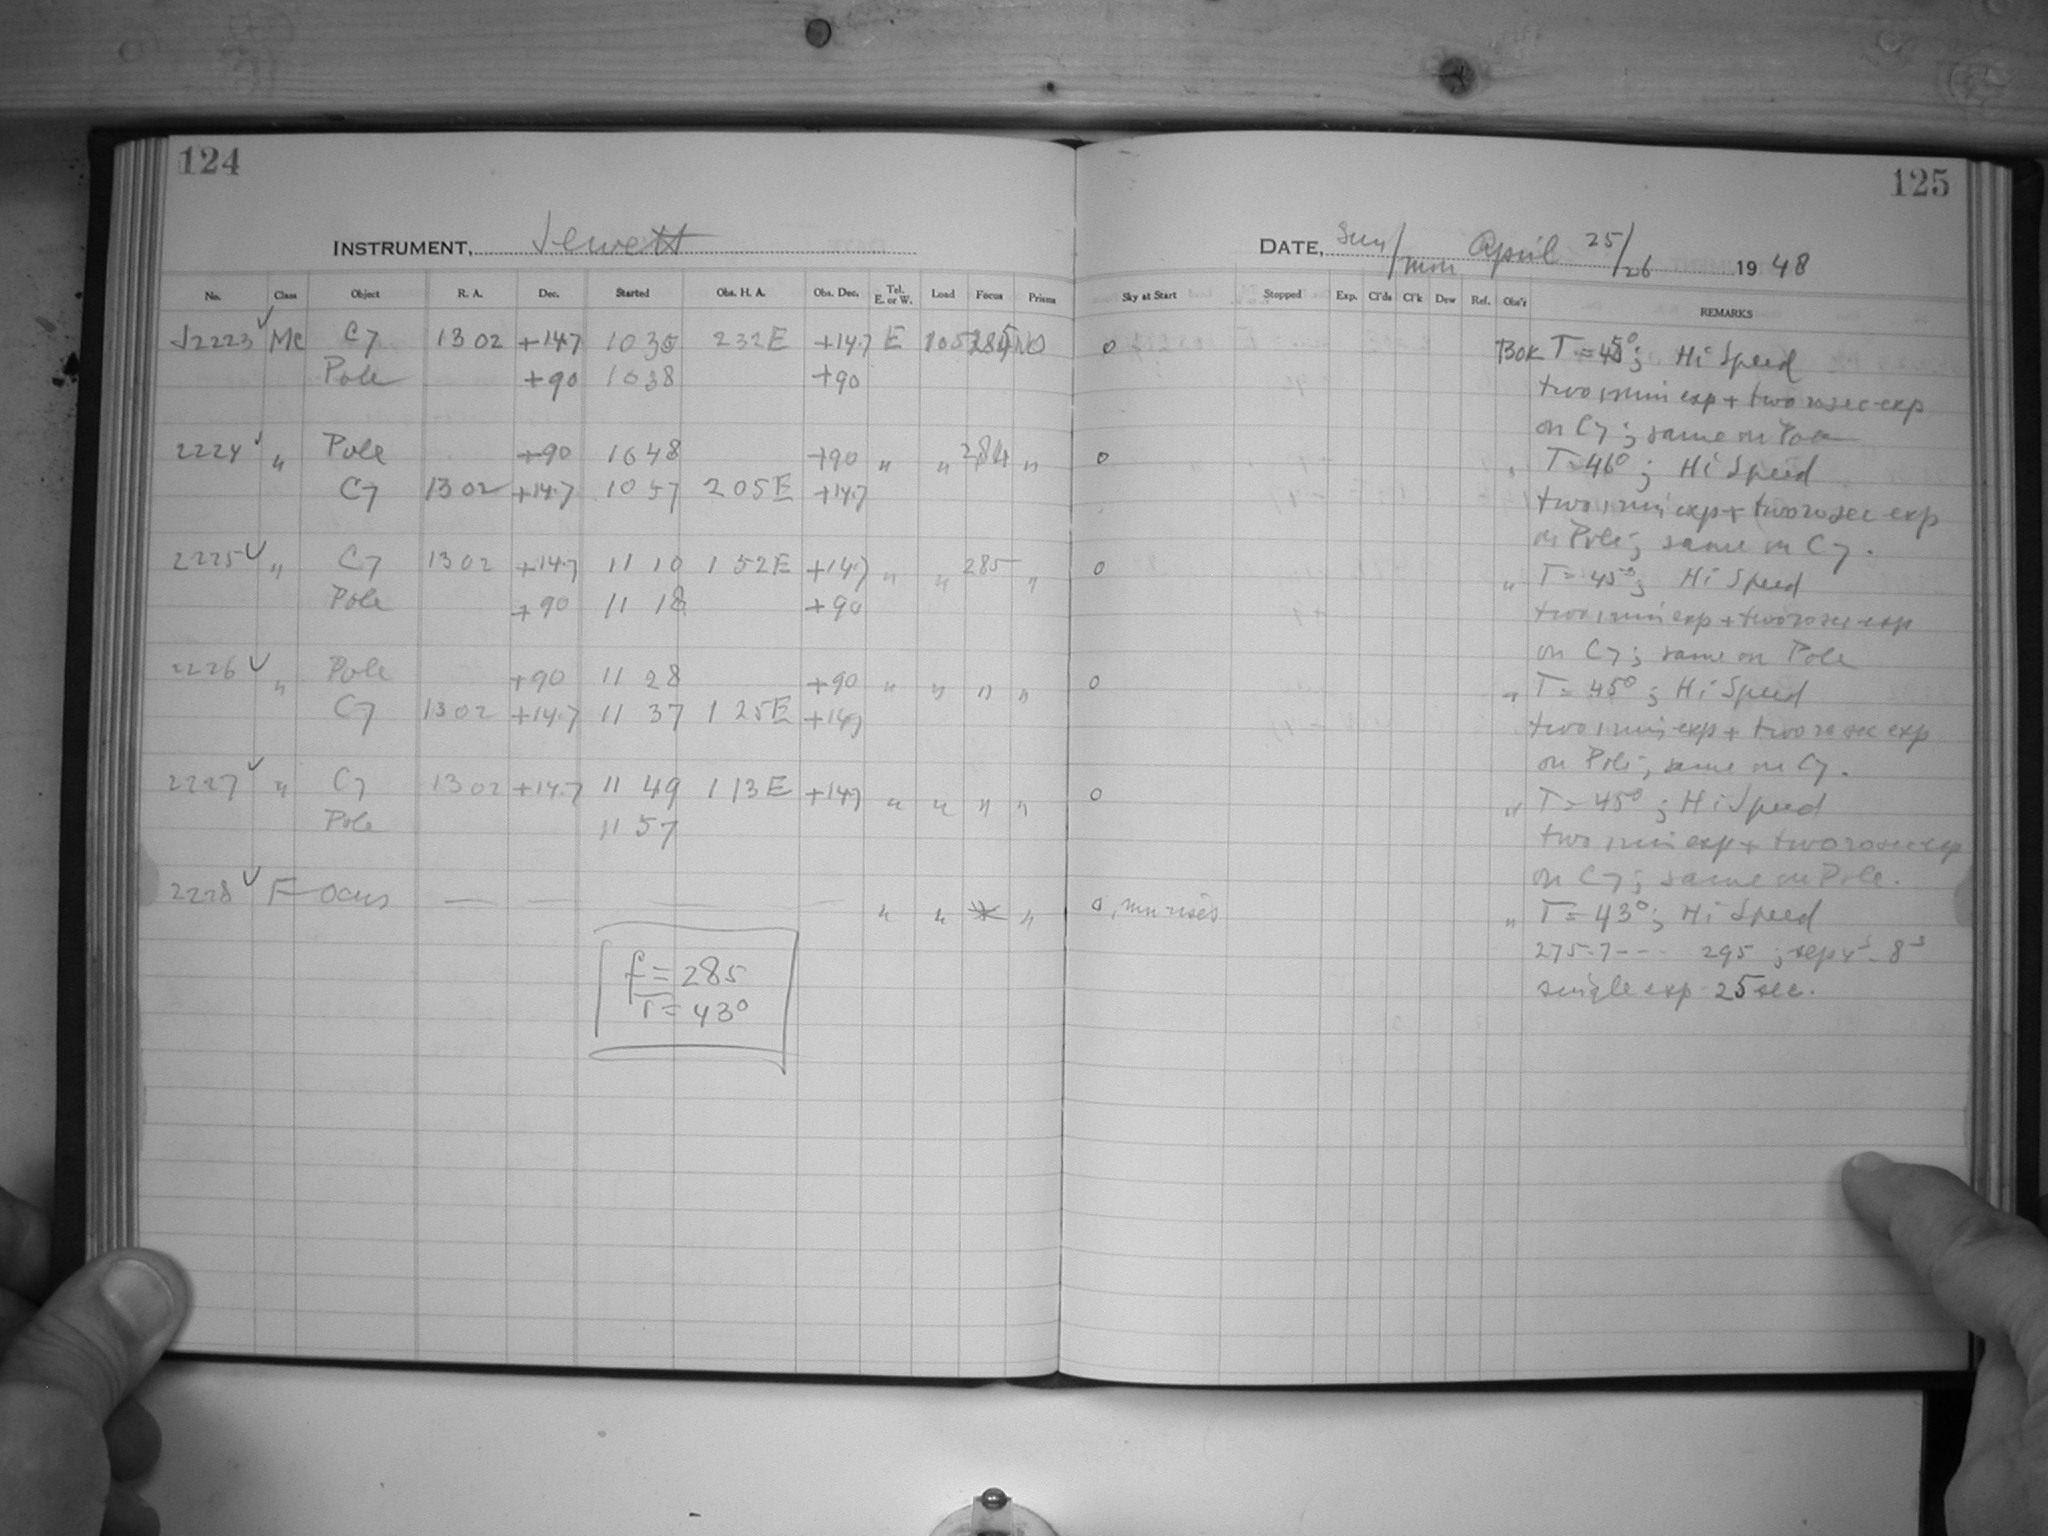 124
INSTRUMENT, Jewett
No. Class Object R. A. Dec. Started Obs. H. A. Obs. Dec. Tel. E. or W. Load Focus Prisms
J2223 ✓ Mc C7 13 02 +14.7 10 30 2 32 E +14.7 E 105 285 NO
Pole +90 10 38 +90
2224 ✓ " Pole +90 10 48 +90 " " 284 "
C7 13 02 +14.7 10 57 2 05 E +14.7
2225 ✓ " C7 13 02 +14.7 11 10 1 52 E +14.7 " " 285 "
Pole +90 11 18 +90
2226 ✓ " Pole +90 11 28 +90 " " " "
C7 13 02 +14.7 11 37 1 25 E +14.7
2227 ✓ " C7 13 02 +14.7 11 49 1 13 E +14.7 " " " "
Pole 11 57
2228 ✓ Focus — — — " " "
f = 285
T = 43°
125
DATE, Sun/Mon April 25/26 1948
Sky at Start Stopped Exp. Cl'ds Cl'k Dew Ref. Obs'r REMARKS
0 Bok T = 45°; Hi Speed
two 1 min exp + two 10 sec exp
on C7; same on Pole
0 " T = 46°; Hi Speed
two 1 min exp + two 10 sec exp
on Pole; same on C7.
0 " T = 45°; Hi Speed
two 1 min exp + two 10 sec exp
on C7; same on Pole
0 " T = 45°; Hi Speed
two 1 min exp + two 10 sec exp
on Pole; same on C7.
0 " T = 45°; Hi Speed
two 1 min exp + two 10 sec exp
on C7; same on Pole.
0, mn rises " T = 43°; Hi Speed
275.7 --- 295; sep 4s - 8s
single exp 25 sec.